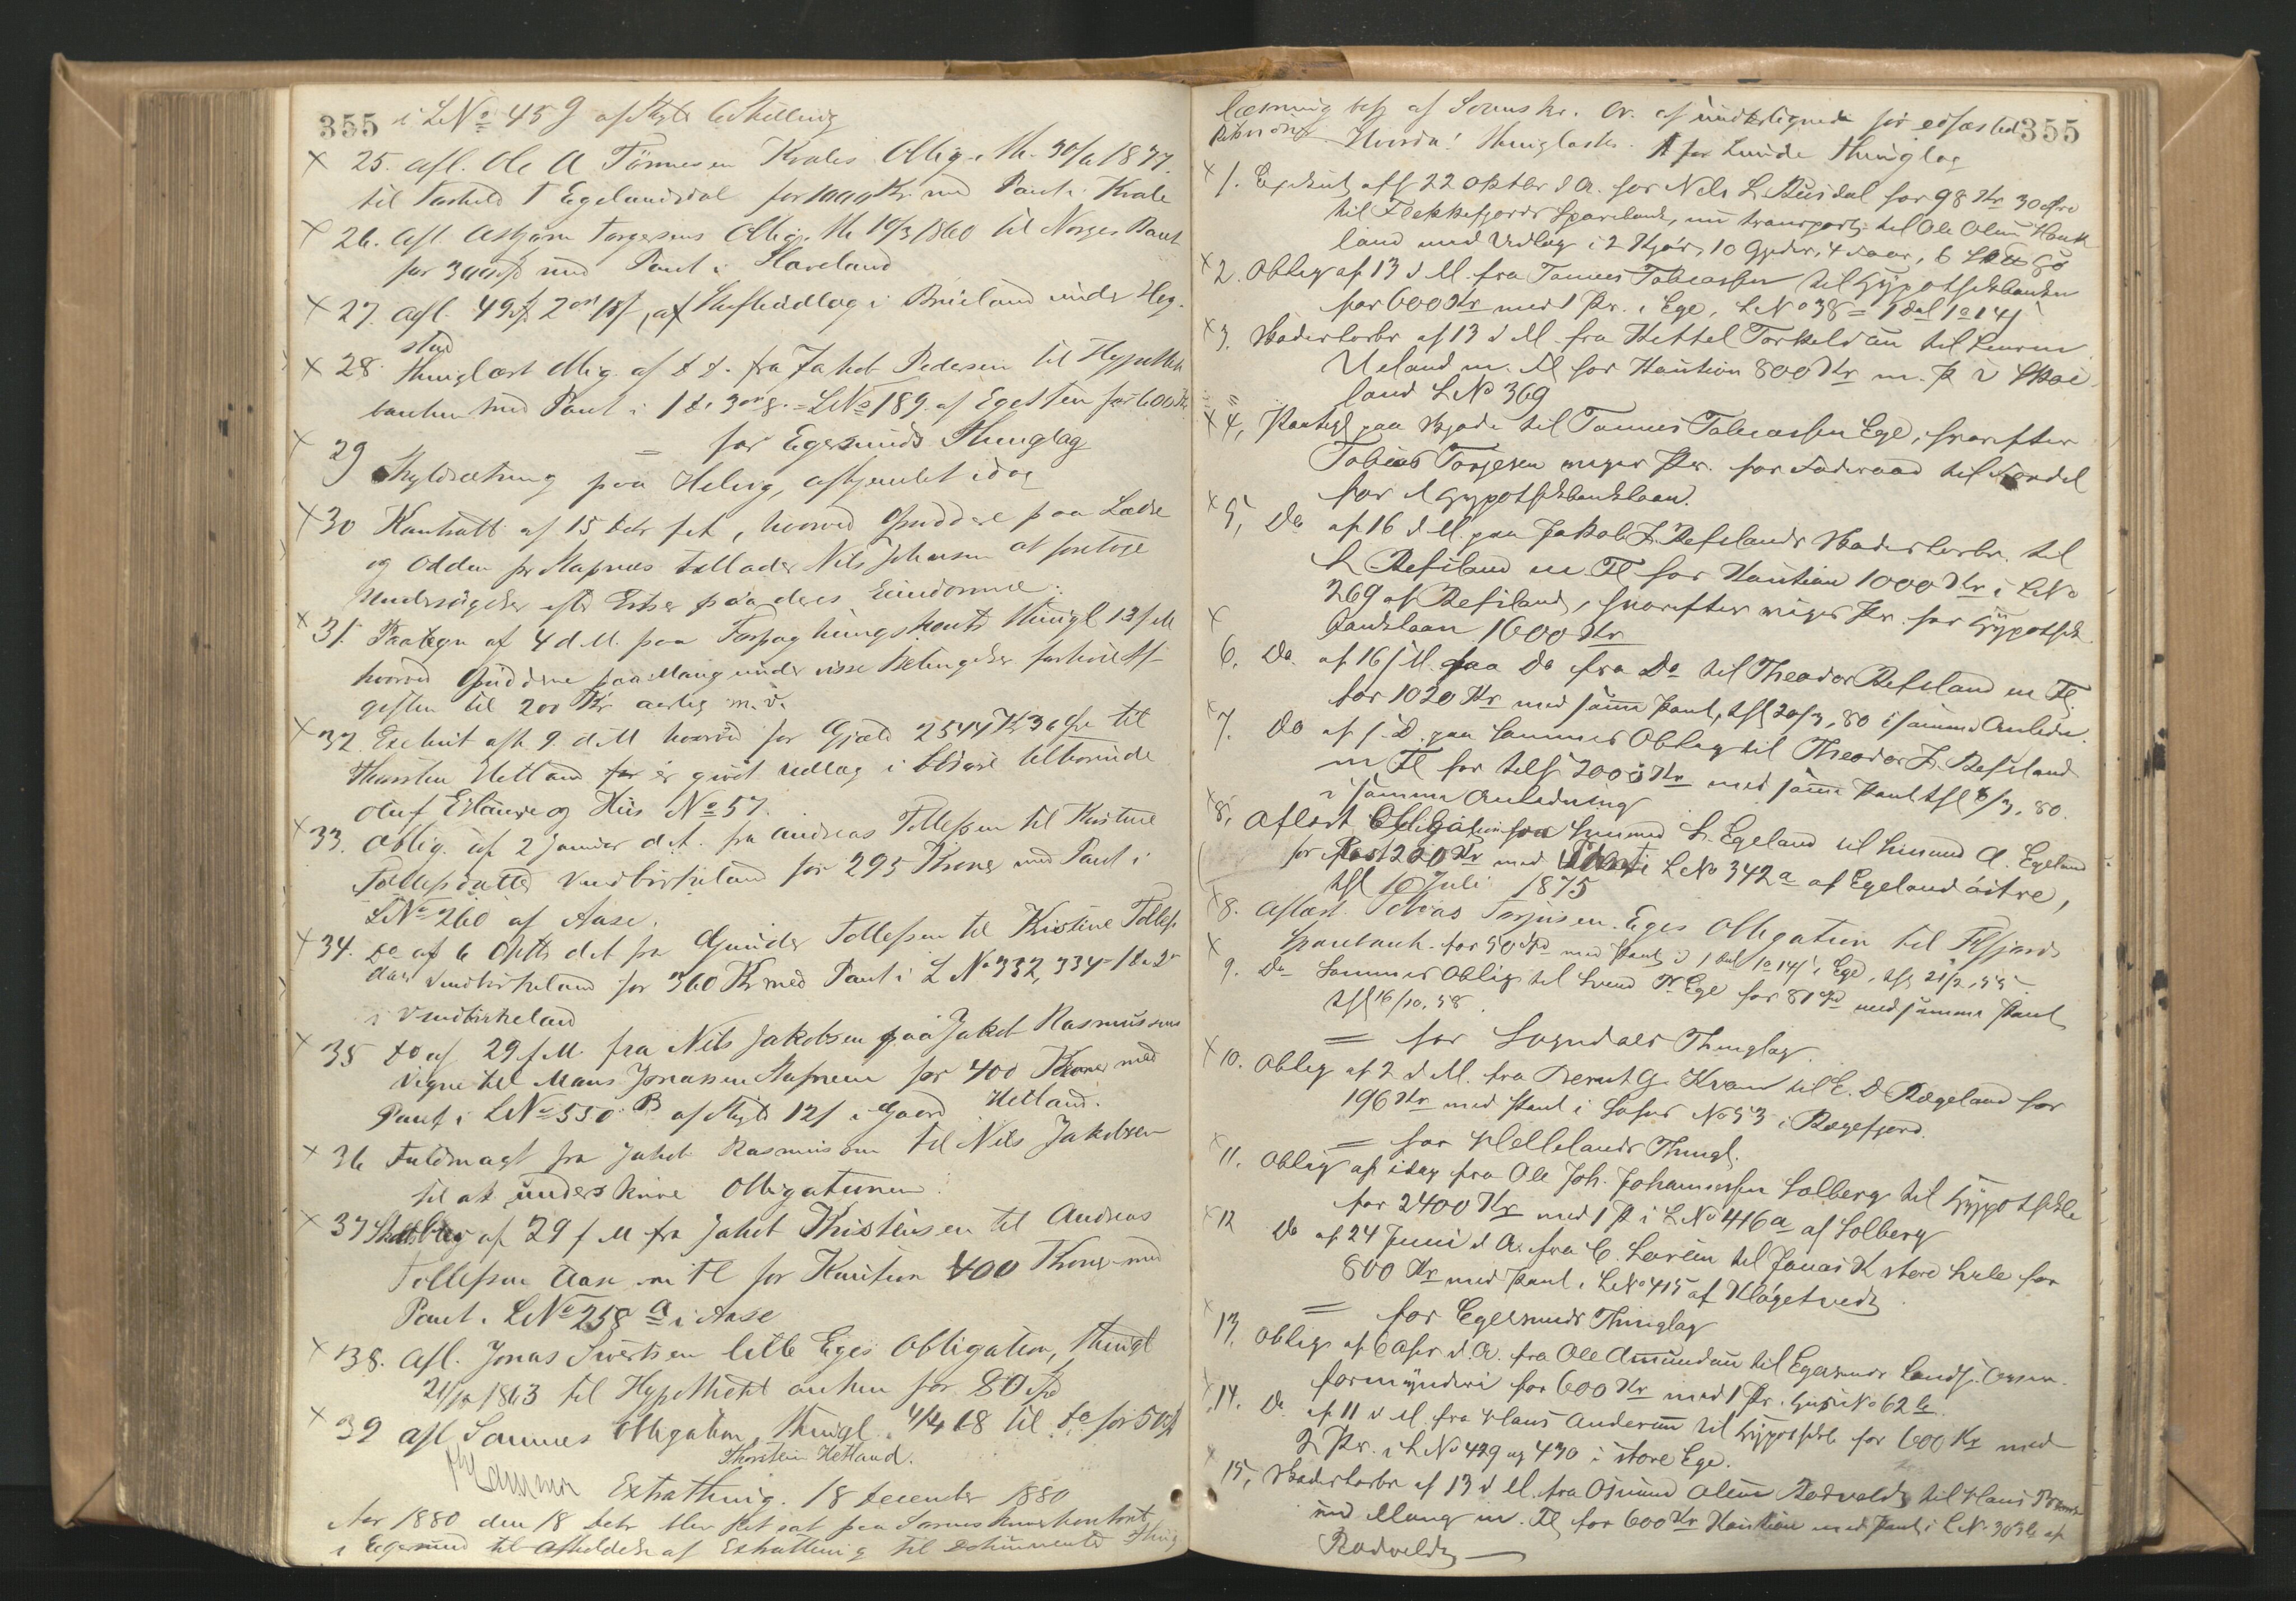 355 i LNo 459 af Skyld 6 Skilling
× 25. afl. Ole A Tönnesen Kvales Oblig. th. 30/ 1877.
til Torkild T Egelandsdal for 1000 Kr. med Pant i Kvale
× 26. afl. Asbjørn Torgersens Oblig. th 10/3 1860 til Norges Bank
for 300 Spd med Pant i Haveland
× 27. afl. 49 Spd 2 ort 18 s, af Skifteudlæg i Brüeland under Heg-
stad
× 28. Thinglæst Oblig. af d. d. fra Jakob Pedersen til Hypothek
banken med Pant i 1 d. 3 ort 8. = LNo 189. af Egesten for 600 Kr
= for Egersunds Thinglag
× 29 Skyldsetning paa Helvig, afhjemlet idag
× 30 Kontrakt af 15 Febr. sit, hvorved Opsiddere paa Lædre
og Odden pr Stapnæs tillader Nils Johnsen at foretage
Undersøgelser efter Ertser paa deres Eiendomme.
× 31. Paategn af 4 d. M. paa Forpagtningskontr thingl 13 f M
hvorved Opsidderne paa Mong under visse Betingelser forhøie Af-
giften til 200 Kr aarlig m. v.
× 32. Exekut afh 9. d. M hvorved for Gjæld 2544 Kr 36 Øre til
Thorsten Hetland for er givet Udlæg i Løsøre tilhørende
Oluf Eslaure og Hus No 57.
× 33. Oblig. af 2 Januar d. A. fra Andreas Tollefsen til Kristine
Tollefsdatter Vendbirkeland for 295 Kroner med Pant i
LNo 260 af Aase.
× 34. Do af 6 Septb d. A fra Gunder Tollefsen til Kristine Tollefs
datr Vendbirkeland for 360 Kr med Pant i L No 332, 334 = 1 d. 2 or
i Vendbirkeland
× 35 Do af 29 f. M. fra Nils Jakobsen paa Jakob Rasmussens
Vegne til Mans Jonassen Stapnem for 400 Kroner med
Pant i LNo 550 B af Skyld 12 s i Gaard Hetland.
× 36 Fuldmagt fra Jakob Rasmussen til Nils Jakobsen
til at underskrive Obligationen.
× 37 Skadesbr af 29 f M fra Jakob Kristensen til Andreas
Tollefsen Aase m fl for Kaution 400 Kroner med
Pant i LNo 258 a i Aase
× 38. Afl. Jonas Sivertsen lille Eges Obligation, thingl
21/10 1863 til Hypothekbanken for 80 Spd
× 39 afl Sammes Obligation, thingl. 4/4 68 til do for 50 Spd
Thorstein Hetland.
Extrathing. 18 December 1880
Aar 1880 den 18 Debr blev Ret sat paa Sorenskriverkontoret
i Egersund til Afholdelse af Extrathing til Dokumenters Thing
355
læsning bes af Sorenskr. Ov. af undertegnede for edfæstede
Retsvidner. Hvorda! Thinglæstes. A for Lunde Thinglag
× 1. Exekut. afh 22 Oktbr d A. hos Nels L. Rusdal for 98 Kr 30 Øre
til Flekkefjords Sparebank, nu transport. til Ole Olsen Hauk
land med Udlæg i 2 Kjør, 10 Gjeder, 4 Faar, 6
× 2. Oblig af 13 d M. fra Tønnes Tobiassen til Hypothekbanken
for 600 Kr med 1 Pr. i Ege, LNo 38 = 1 dal 1 o 14 s
× 3. Skadesløsbr af 13 d M. fra Kettel Torkelsen til Laurs
Ueland m. fl for Kaution 800 Kr m. P i Skaa-
land LNo 369
× 4. Paategn paa Skjøde til Tønnes Tobiassen Ege, hvorefter
Tobias Torjesen viger Pr. for Føderaad til Fordel
for et Hypothekbanklaan.
× 5. Do af 16 d M. paa Jakob J. Refslands Skadesløsbr. til
L Refsland m. Fl for Kaution 1000 Kr i LNo
269 af Refsland, hvorefter viger Pr. for Hypothek-
banklaan 1600 Kr
×
6. Do. af 16 s M. paa Do fra Do til Theodor Refsland m Fl.
for 1020 Kr med samme Pant, thl 20/3, 80 i samme Anledn.
× 7. Do af s. D. paa Sammes Oblig til Theodor J. Refsland
m Fl for tils 2000 Kr med samme Pant thl 8/3, 80.
i samme Anledning
× 8, Aflæst Obligation fra Gunnuf L. Egeland til Gunuf A. Egeland
for Rest 220 Kr med Pant i LNo 342 a af Egeland østre,
thl 10 Juli 1875
× 8. Aflæst Tobias Torjesen Eges Obligation til Flfjords
Sparebank for 50 Spd med Pant i 1 dal 1 o 14 s i Ege, thl 21/2, 55
× 9. Do Sammes Oblig til Svend T. Ege for 81 Spd med samme Pant
thl 16/10, 58.
= for Sogndals Thinglag.
× 10. Oblig af 2 d M. fra Bernt G. Kvam til E. D Rægeland for
196 Kr med Pant i Søhus No 53 i Rægefjord.
= for Hellelands Thingl.
× 11. Oblig af idag fra Ole Joh. Johannessen Solberg til Hypothekb
for 2400 Kr med 1 P i LNo 416 a af Solberg
× 12 Do af 24 Juni d A. fra C. Laren til Jonas K store Svele for
800 Kr med Pant i LNo 415 af Klagetvedt.
= for Egersunds Thinglag
× 13. Oblig af 6 Apr d. A. fra Ole Amundsen til Egersunds Landsogn. Over-
formynderi for 600 Kr med 1 Pr. i Hus No 62 b.
× 14. Do af 11 d M. fra Hans Andersen til Hypothekb for 600 Kr med
2 Pr. i LNo 429 og 430 i store Ege.
× 15, Skadesløsbr af 13 d M. fra Osmund Olsen Rodvelds til Hans
med Mong m. Fl for 600 Kr Kaution med Pant i LNo 303 b af
Rodvelds